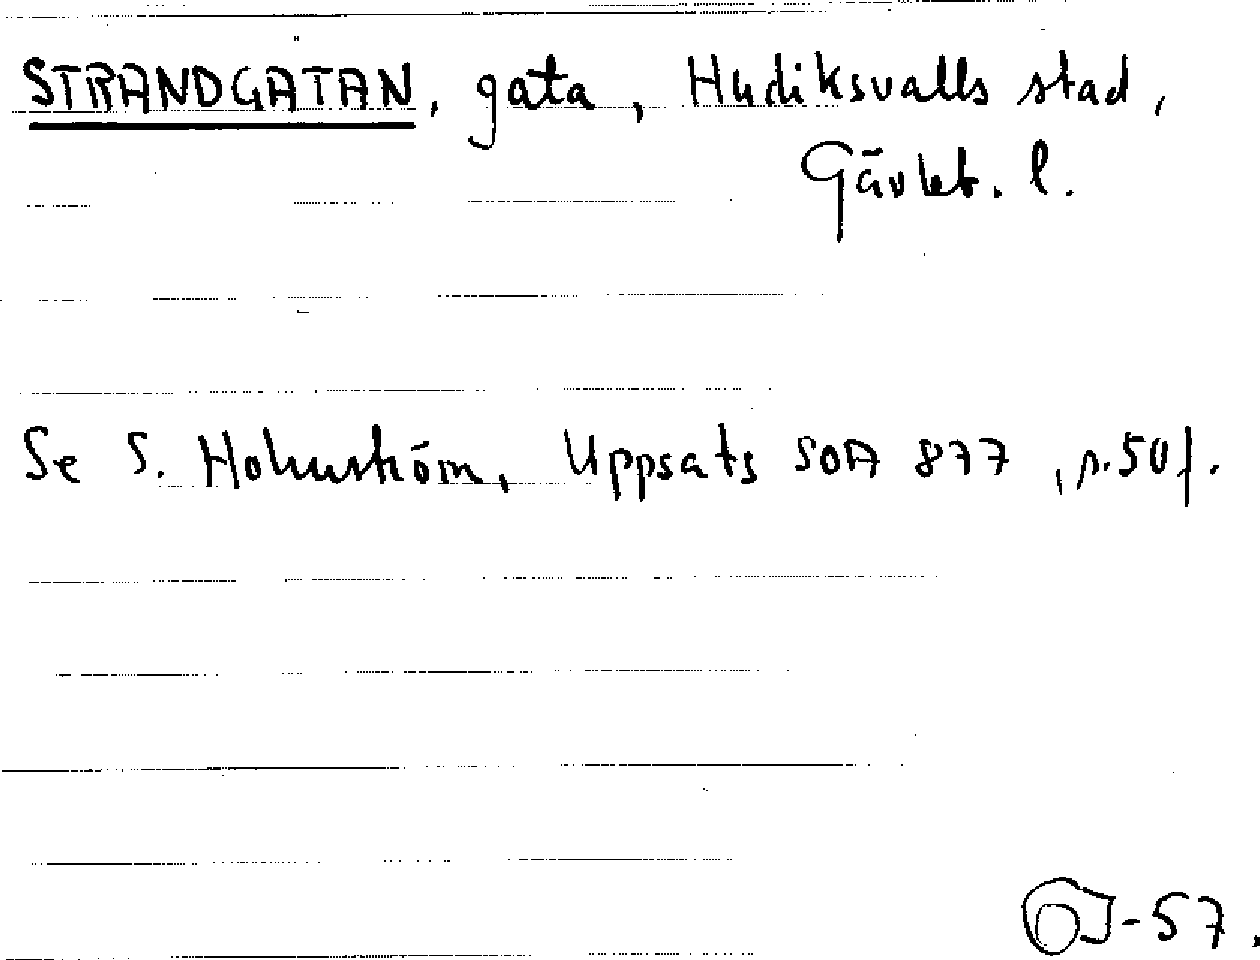 STRANDGATAN, gata, Hudiksvalls stad,
Gävleb. l.
Se S. Holmström, Uppsats SOA 877, s. 50 f.
-57.